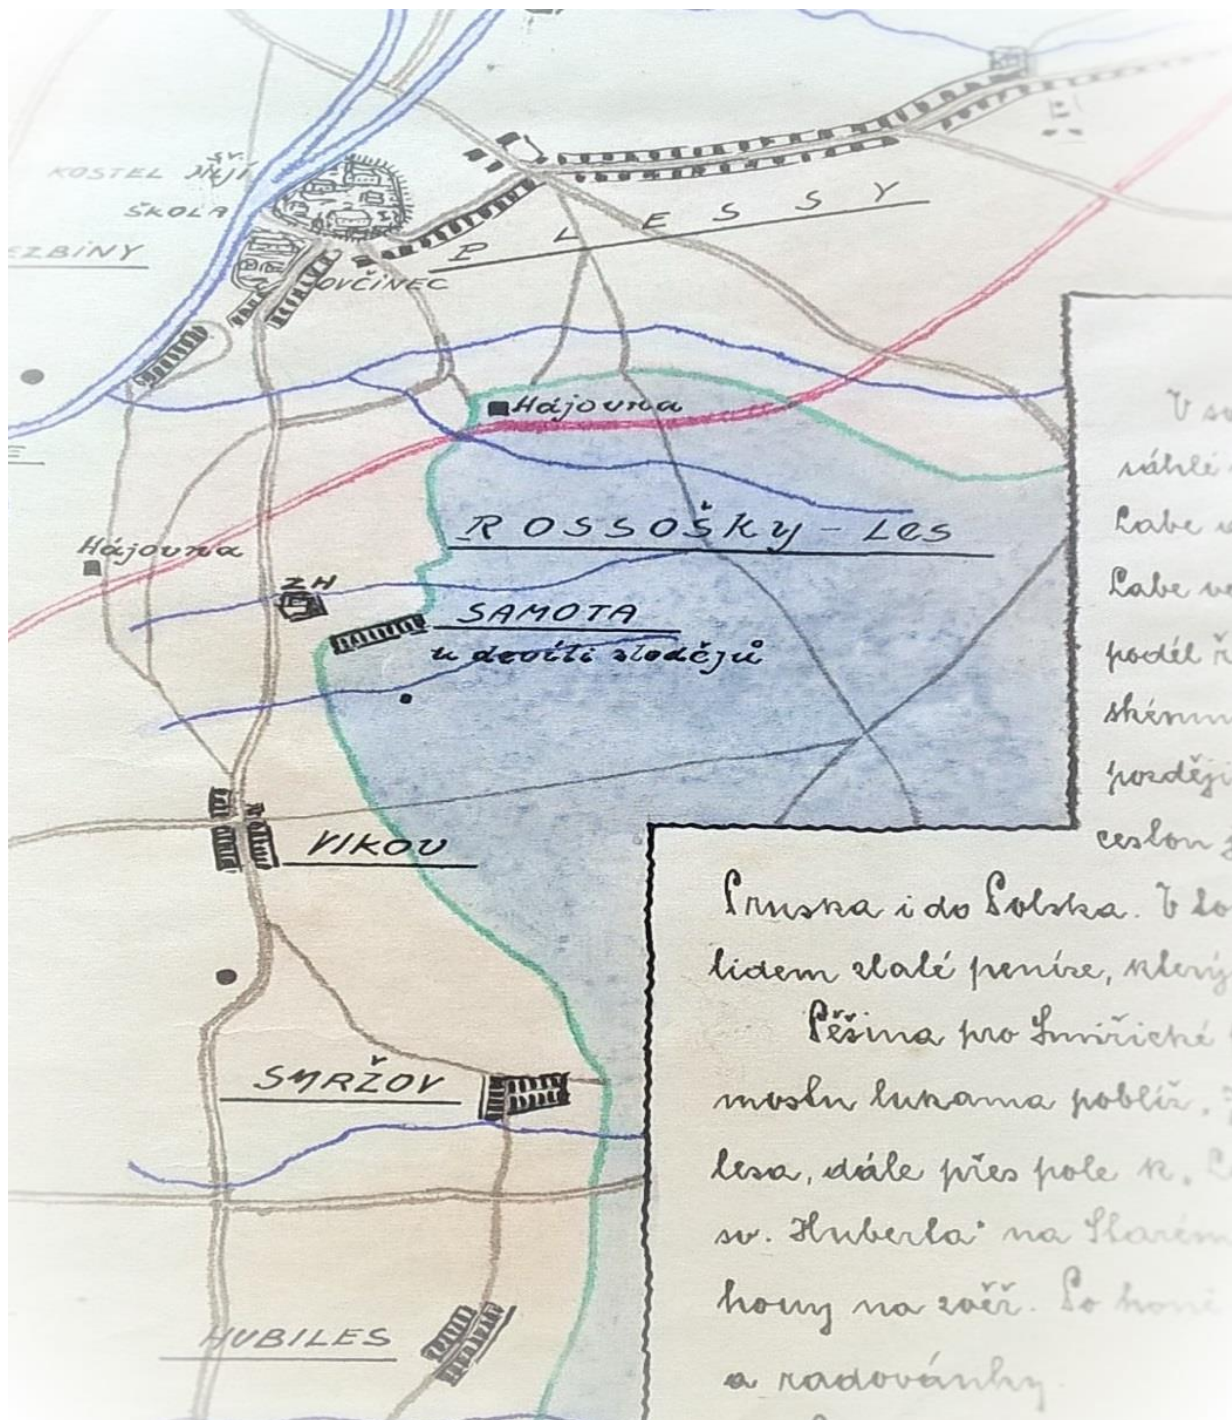 KOSTEL sv. JILJÍ
ŠKOLA
EZBINY
OVČINEC
PLESSY
Hájovna
ROSSOŠKY - LES
Hájovna
ZH
SAMOTA
u devíti zlodějů
VIKOV
SMRŽOV
HUBILES
E
V s
sáhlé
Labe
Labe ve
podél ř
skému
později
cestou z
Pruska i do Polska. V
lidem zlaté peníze, který
Pěšina pro Smiřické
mostu lukama poblíž,
lesa, dále přes pole k
sv. Huberta" na Starém
hony na zvěř. Po honě
a radovánky.